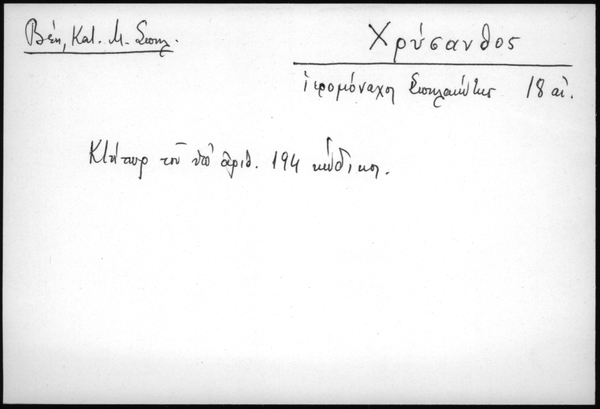 Βέη, Κατ. Μ. Σπηλ.
Χρύσανθος
ἱερομόναχος Σπηλαιώτης 18 αἰ.
Κτήτωρ τοῦ ὑπ' ἀριθ. 194 κώδικος.